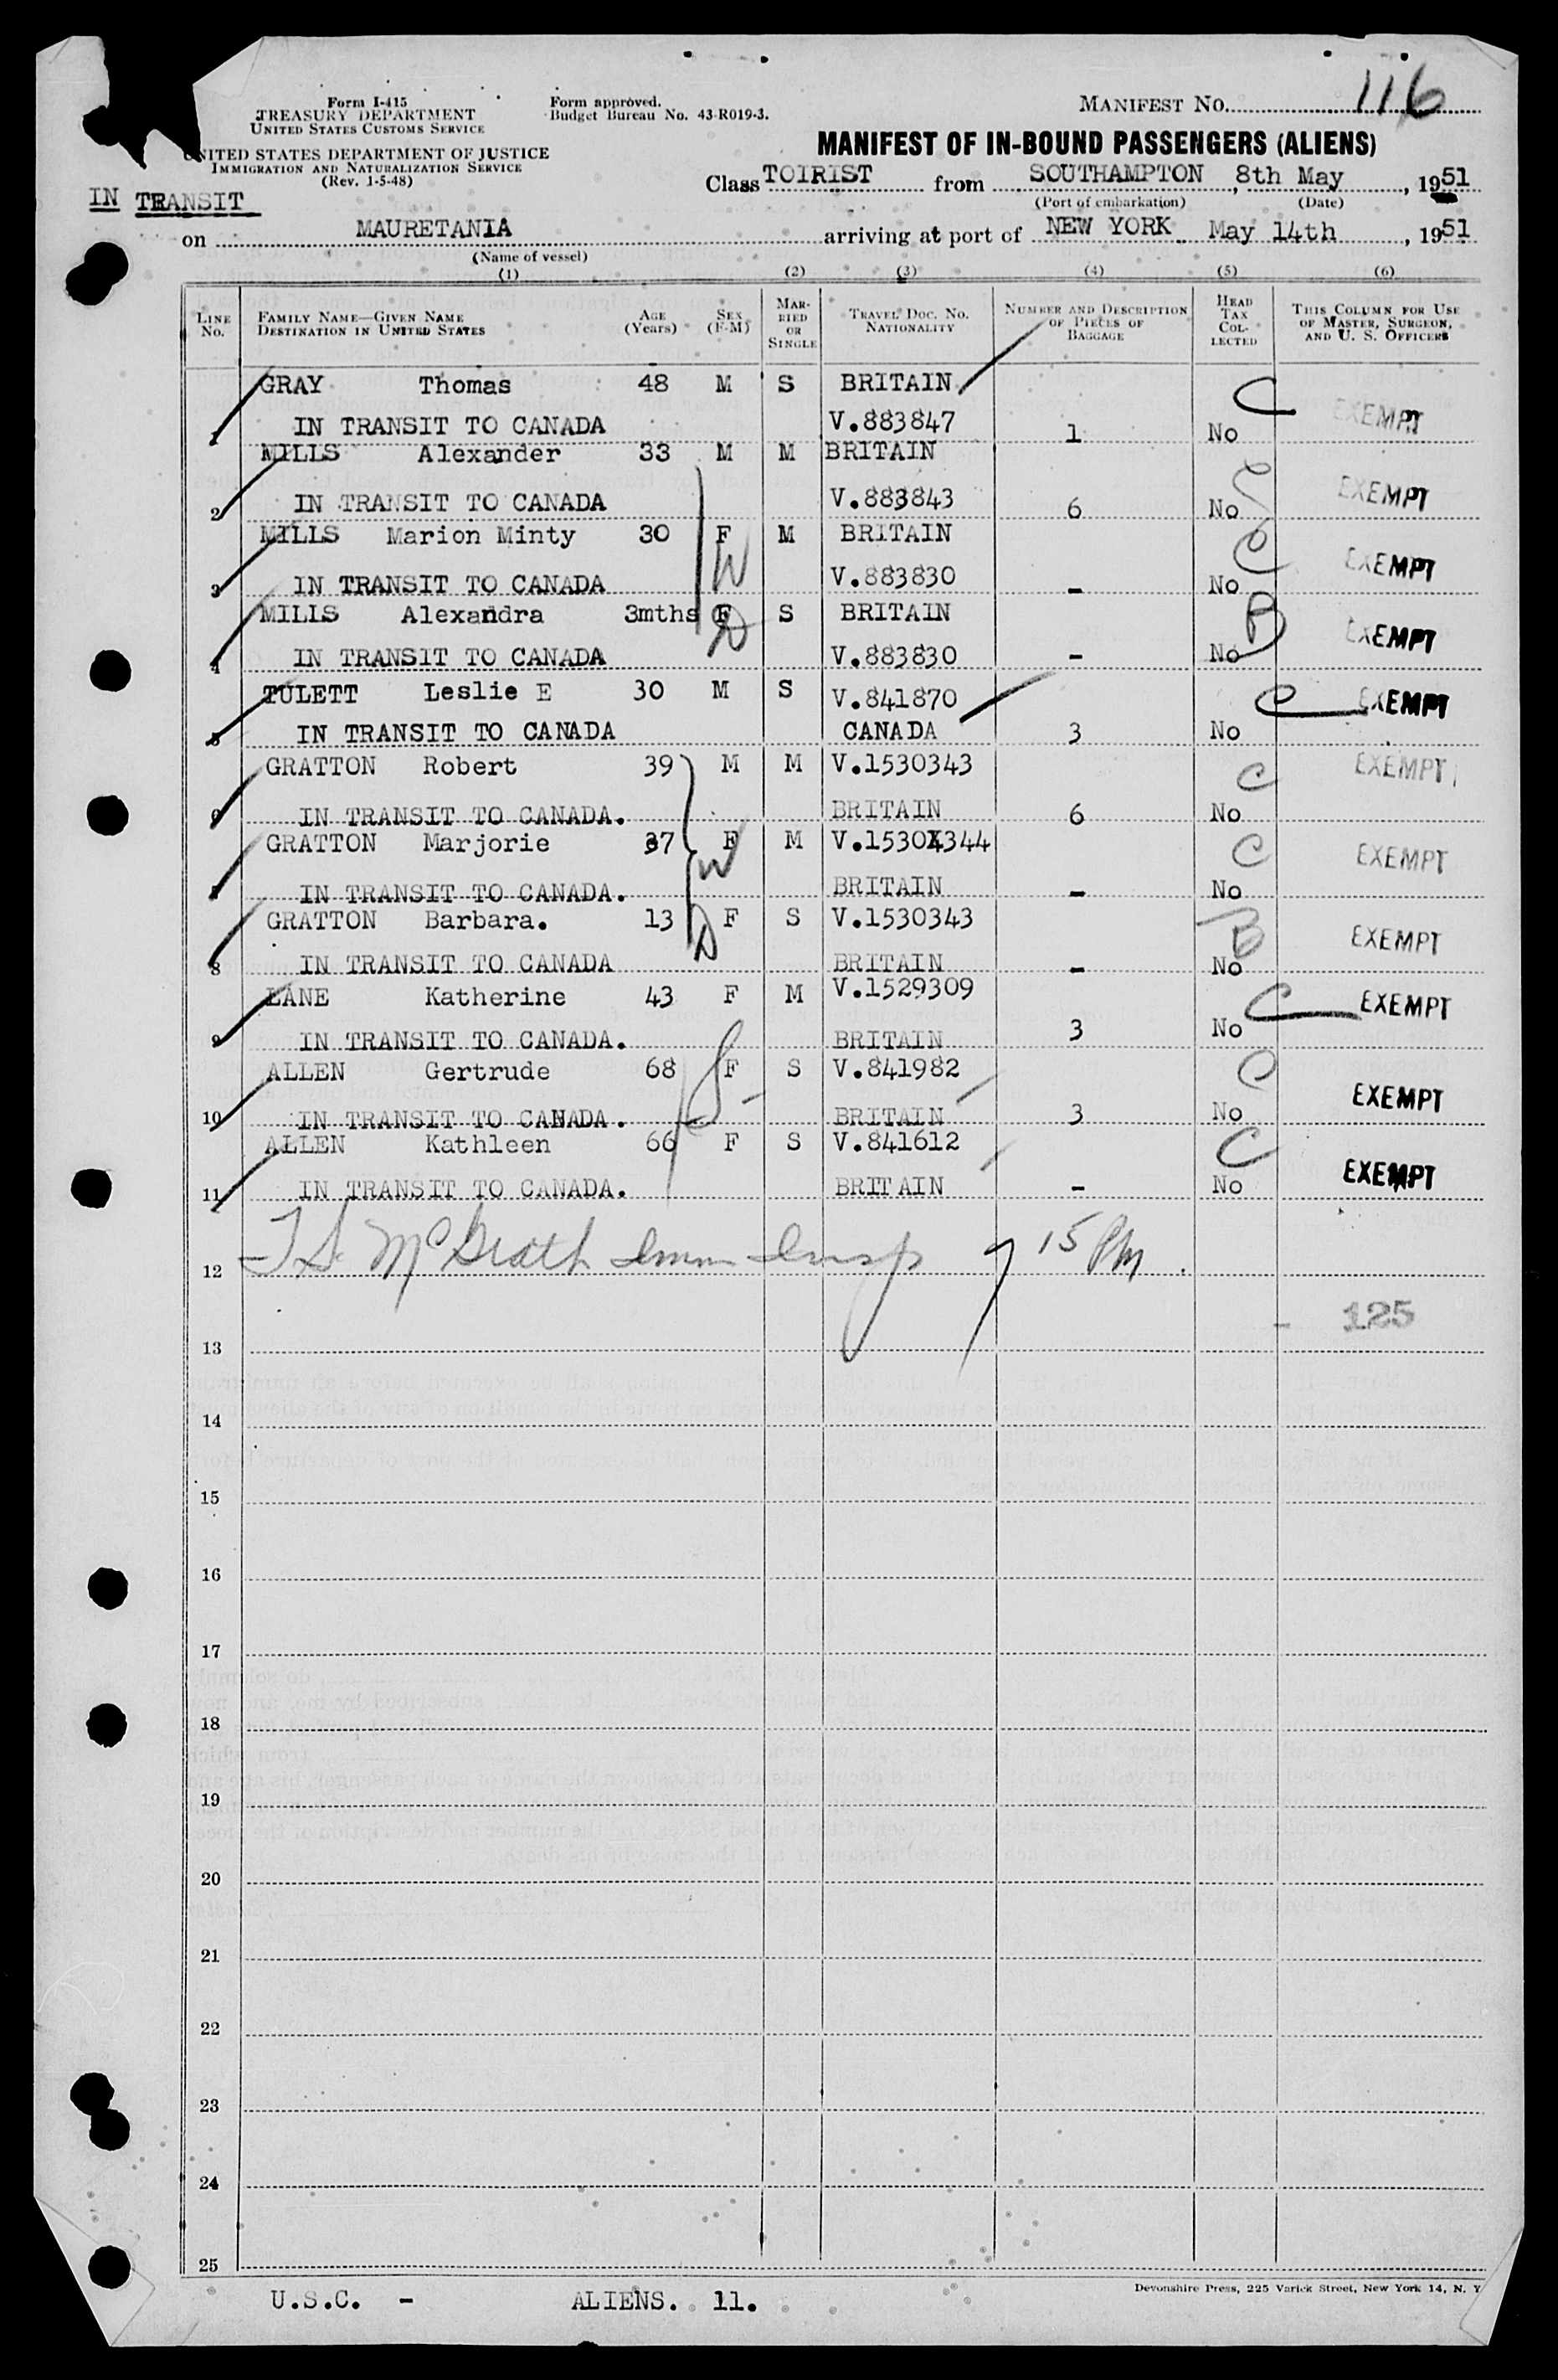 Form I-415
TREASURY DEPARTMENT
UNITED STATES CUSTOMS SERVICE
UNITED STATES DEPARTMENT OF JUSTICE
IMMIGRATION AND NATURALIZATION SERVICE
(Rev. 1-5-48)
Form approved.
Budget Bureau No. 43-R019-3.
MANIFEST NO. 116
MANIFEST OF IN-BOUND PASSENGERS (ALIENS)
IN TRANSIT
Class TOIRIST from SOUTHAMPTON, 8th May, 1951
(Port of embarkation) (Date)
on MAURETANIA arriving at port of NEW YORK May 14th, 1951
(Name of vessel)
(1) (2) (3) (4) (5) (6)
LINE NO. FAMILY NAME—GIVEN NAME DESTINATION IN UNITED STATES AGE (Years) SEX (F-M) MARRIED OR SINGLE TRAVEL DOC. NO. NATIONALITY NUMBER AND DESCRIPTION OF PIECES OF BAGGAGE HEAD TAX COLLECTED THIS COLUMN FOR USE OF MASTER, SURGEON, AND U. S. OFFICERS
GRAY Thomas 48 M S BRITAIN C EXEMPT
1 IN TRANSIT TO CANADA V.883847 1 No
MILLS Alexander 33 M M BRITAIN C EXEMPT
2 IN TRANSIT TO CANADA V.883843 6 No
MILLS Marion Minty 30 F M BRITAIN C EXEMPT
3 IN TRANSIT TO CANADA W V.883830 - No
MILLS Alexandra 3mths F S BRITAIN B EXEMPT
4 IN TRANSIT TO CANADA D V.883830 - No
TULETT Leslie E 30 M S V.841870 C EXEMPT
5 IN TRANSIT TO CANADA CANADA 3 No
GRATTON Robert 39 M M V.1530343 C EXEMPT
6 IN TRANSIT TO CANADA. BRITAIN 6 No
GRATTON Marjorie 37 F M V.1530X344 C EXEMPT
7 IN TRANSIT TO CANADA. W BRITAIN - No
GRATTON Barbara. 13 F S V.1530343 B EXEMPT
8 IN TRANSIT TO CANADA D BRITAIN - No
LANE Katherine 43 F M V.1529309 C EXEMPT
9 IN TRANSIT TO CANADA. BRITAIN 3 No
ALLEN Gertrude 68 F S V.841982 C EXEMPT
10 IN TRANSIT TO CANADA. BRITAIN 3 No
ALLEN Kathleen 66 F S V.841612 C EXEMPT
11 IN TRANSIT TO CANADA. BRITAIN - No
12 McGrath Imm Insp 7 15 PM.
- 125
13
14
15
16
17
18
19
20
21
22
23
24
25
Devonshire Press, 225 Varick Street, New York 14, N. Y
U.S.C. - ALIENS. 11.